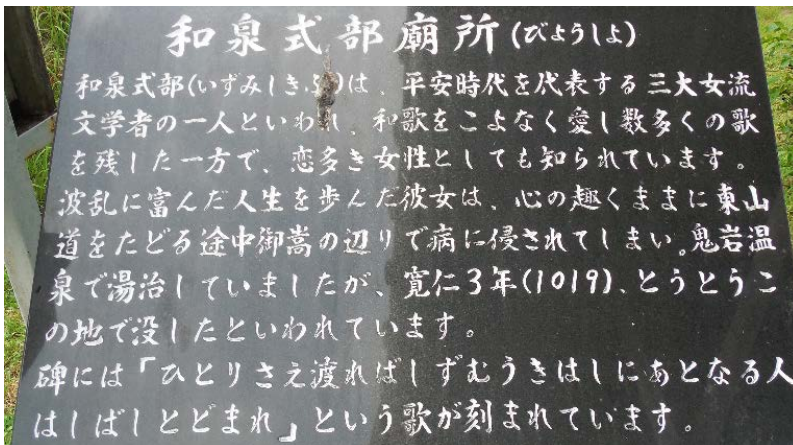 和泉式部廟所(びょうしよ)
和泉式部(いずみしきぶ)は、平安時代を代表する三大女流
文学者の一人といわれ、和歌をこよなく愛し数多くの歌
を残した一方で、恋多き女性としても知られています。
波乱に富んだ人生を歩んだ彼女は、心の趣くままに東山
道をたどる途中御嵩の辺りで病に侵されてしまい。鬼岩温
泉で湯治していましたが、寛仁3年(1019)、とうとうこ
の地で没したといわれています。
碑には「ひとりさえ渡ればしずむうきはしにあとなる人
はしばしとどまれ」という歌が刻まれています。